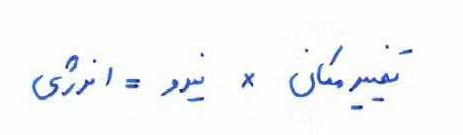 تغییر مکان × نیرو = انرژی